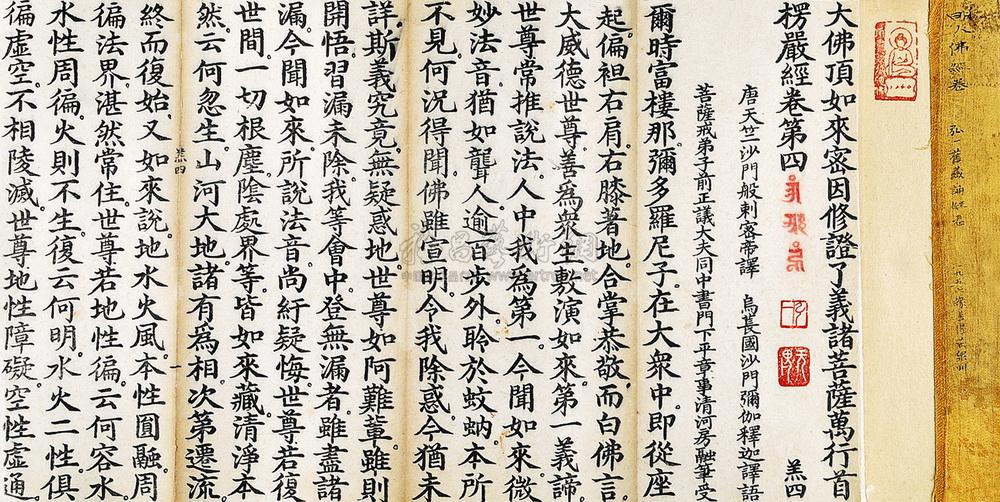 大佛頂如來密因修證了義諸菩薩萬行首
楞嚴經卷第四
羔四
唐天竺沙門般剌密帝譯 烏萇國沙門彌伽釋迦譯語
菩薩戒弟子前正議大夫同中書門下平章事清河房融筆受
爾時富樓那彌多羅尼子在大衆中即從座
起偏袒右肩右膝著地合掌恭敬而白佛言
大威德世尊善爲衆生敷演如來第一義諦
世尊常推說法人中我為第一今聞如來微
妙法音猶如聾人逾百步外聆於蚊蚋本所
不見何況得聞佛雖宣明令我除惑今猶未
詳斯義究竟無疑惑地世尊如阿難輩雖則
開悟習漏未除我等會中登無漏者雖盡諸
漏今聞如來所說法音尚紆疑悔世尊若復
世間一切根塵陰處界等皆如來藏清淨本
然云何忽生山河大地諸有爲相次第遷流
羔四
終而復始又如來說地水火風本性圓融周
徧法界湛然常住世尊若地性徧云何容水
水性周徧火則不生復云何明水火二性俱
徧虛空不相陵滅世尊地性障礙空性虛通